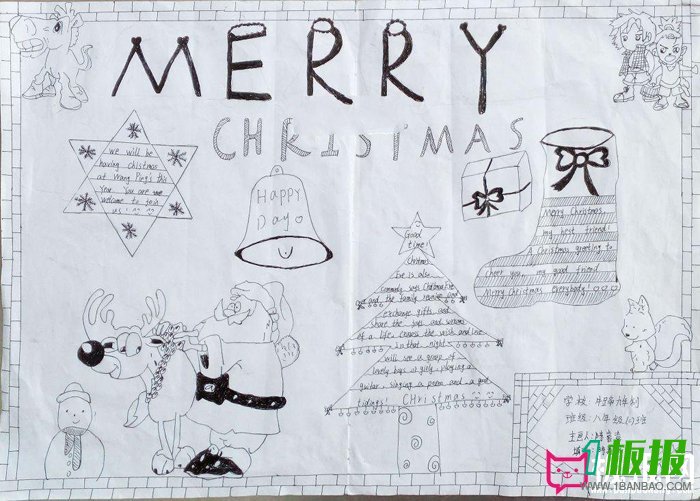 MERRY
CHRISTMAS
we will be
having chistmas
at Wang Ping's this
Year. You are
welcome to join
us!
Happy
Day
Merry Christmas
my best friend
A Christmas greeting to
cheer you, my good friend
Merry Christmas everybody!
Good
time!
Christmas
Eve is also
commonly says Christmas Eve
and the family reunion and
exchange gifts, and
share the joys and
of a life, convess the wish and love
in that night,
will see a group of
lovely boys or girls, playing a
guitar, singing a poem and a good
tidings! CHristmas
学校:
班级:八年级
主办人:
1板报
WWW.1BANBAO.COM